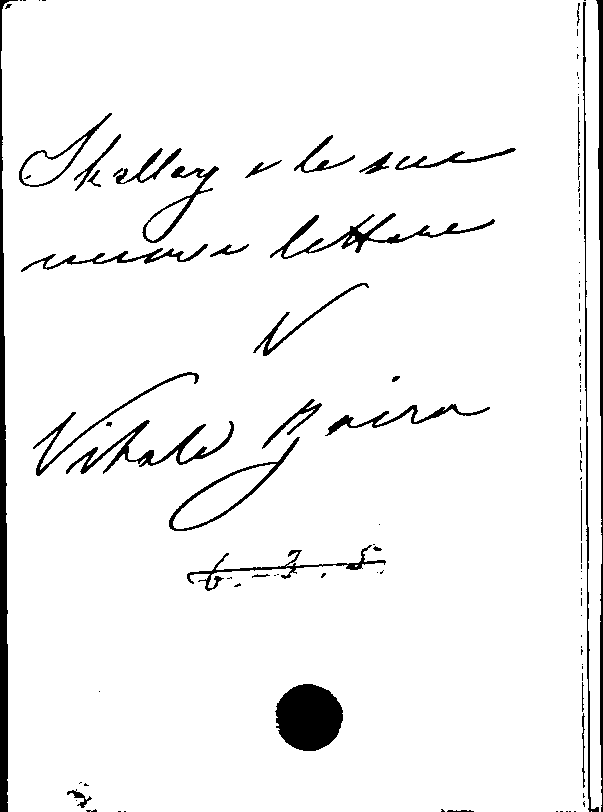 Shelley e le sue
nuove lettere
V
Vitale Zaira
6.-3.5